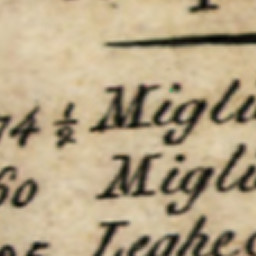 74 ½ Migli
60 Migli
Leghe